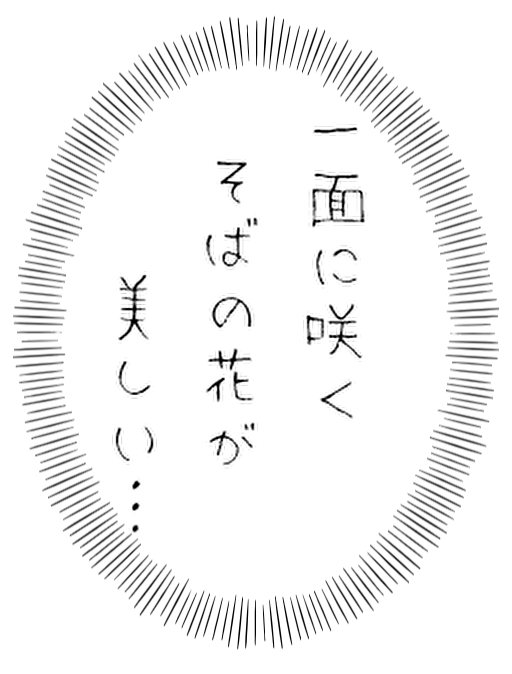 一面に咲く
そばの花が
美しい…